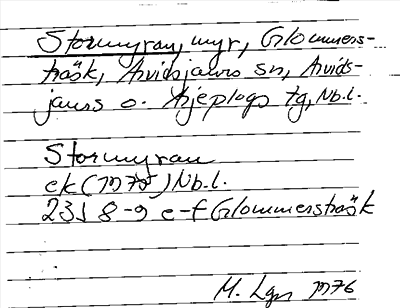 Stormyran, myr, Glommers-
träsk, Arvidsjaurs sn, Arvids-
jaurs o. Arjeplogs tg, Nb.l.
Stormyran
ek (1975) Nb.l.
23J 8-9 e-f Glommersträsk
M. Lgn 1976